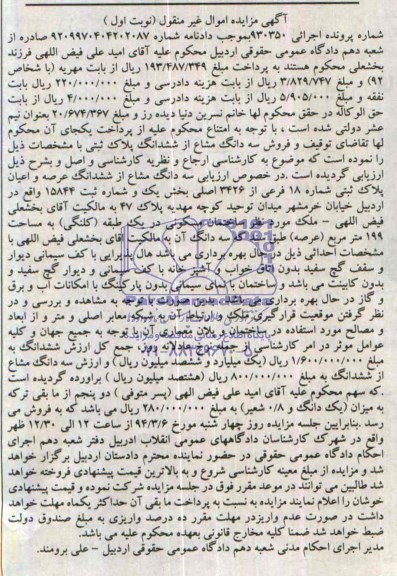 آگهی مزایده اموال غیر منقول (نوبت اول)
شماره پرونده اجرائی ۹۳۰۳۵۰بموجب دادنامه شماره ۹۲۰۹۹۷۰۴۰۴۲۰۲۰۸۷ صادره از
شعبه دهم دادگاه عمومی حقوقی اردبیل محکوم علیه آقای امید علی فیض اللهی فرزند
بخشعلی محکوم هستند به پرداخت مبلغ ۱۹۳/۴۸۷/۳۴۹ ریال از بابت مهریه (با شخاص
۹۲) و مبلغ ۳/۸۲۹/۷۴۷ ریال از بابت هزینه دادرسی و مبلغ ۲۲۰/۰۰۰/۰۰۰ ریال بابت
نفقه و مبلغ ۵/۹۰۵/۰۰۰ ریال از بابت هزینه دادرسی و مبلغ ۴/۰۰۰/۰۰۰ ریال از بابت
حق الوکاله در حق محکوم لها خانم نسرین دنیا دیده رز و مبلغ ۲۰/۶۷۴/۳۶۷ بعنوان نیم
عشر دولتی شده است ، با توجه به امتناع محکوم علیه از پرداخت یکجای آن محکوم
لها تقاضای توقیف و فروش سه دانگ مشاع از ششدانگ پلاک ثبتی با مشخصات ذیل
را نموده است که موضوع به کارشناسی ارجاع و نظریه کارشناسی و اصل و بشرح ذیل
ارزیابی گردیده است .در خصوص ارزیابی سه دانگ مشاع از ششدانگ عرصه و اعیان
پلاک ثبتی شماره ۱۸ فرعی از ۳۴۲۶ اصلی بخش یک و شماره ثبت ۱۵۸۴۴ واقع در
اردبیل خیابان خرمشهر میدان توحید کوچه مهدیه پلاک ۴۷ به مالکیت آقای بخشعلی
فیض اللهی - ملک مورد نظر ساختمان مسکونی در یک طبقه (کلنگی) به مساحت
۱۹۹ متر مربع (عرصه) سه دانگ آن به مالکیت آقای بخشعلی فیض اللهی با
مشخصات احداثی ذیل در حال بهره برداری می باشد هال پذیرایی با کف سیمانی دیوار
و سقف گچ سفید بدون اتاق خواب و آشپزخانه با کف سیمانی و دیوار گچ سفید و
بدون کابینت می باشد و ساختمان با نمای سیمانی بدون پارکینگ با امکانات آب و برق
و گاز در حال بهره برداری می باشد با توجه به مشاهده و بررسی و در
نظر گرفتن موقعیت قرارگیری ملک و ارتباط آن به شبکه معابر اصلی و متر و از ابعاد
و مصالح مورد استفاده در ساختمان و پلان معماری آن با توجه به جمیع جهان و کلیه
عوامل موثر در امر کارشناسی از جمله نرخ عادلانه روز، جمع کل ارزش ششدانگ به
مبلغ ۱/۶۰۰/۰۰۰/۰۰۰ ریال (یک میلیارد و ششصد میلیون ریال) و ارزش سه دانگ مشاع
از ششدانگ به مبلغ ۸۰۰/۰۰۰/۰۰۰ ریال (هشتصد میلیون ریال) براورده گردیده است
.که سهم محکوم علیه آقای امید علی فیض الهی (پسر متوفی) دو پنجم از ما بقی ترکه
به میزان (یک دانگ و ۰/۸ شعیر) به مبلغ ۲۸۰/۰۰۰/۰۰۰ ریال می باشد که به فروش می
رسد .بنابرایین جلسه مزایده روز چهار شنبه مورخ ۹۴/۳/۶ از ساعت ۱۲ الی ۱۲/۳۰ ظهر
واقع در شهرک کارشناسان دادگاههای عمومی انقلاب ادربیل دفتر شعبه دهم اجرای
احکام دادگاه عمومی حقوقی در حضور نماینده محترم دادستان اردبیل برگزار خواهد
شد و مزایده از مبلغ معینه کارشناسی شروع و به بالاترین قیمت پیشنهادی فروخته خواهد
شد طالبین می توانند در موعد مقرر فوق در جلسه مزایده شرکت نموده و قیمت پیشنهادی
خوشان را اعلام نمایند مزایده به نسبت به پرداخت ما بقی آن حداکثر یکماه مهلت خواهد
داشت در صورت عدم واریزدر مهلت مقرر ده درصد واریزی به مبلغ صندوق دولت
ضبط خواهد شد ضمنا کلیه مخارج قانونی بعهده محکوم علیه می باشد.
مدیر اجرای احکام مدنی شعبه دهم دادگاه عمومی حقوقی اردبیل - علی برومند.